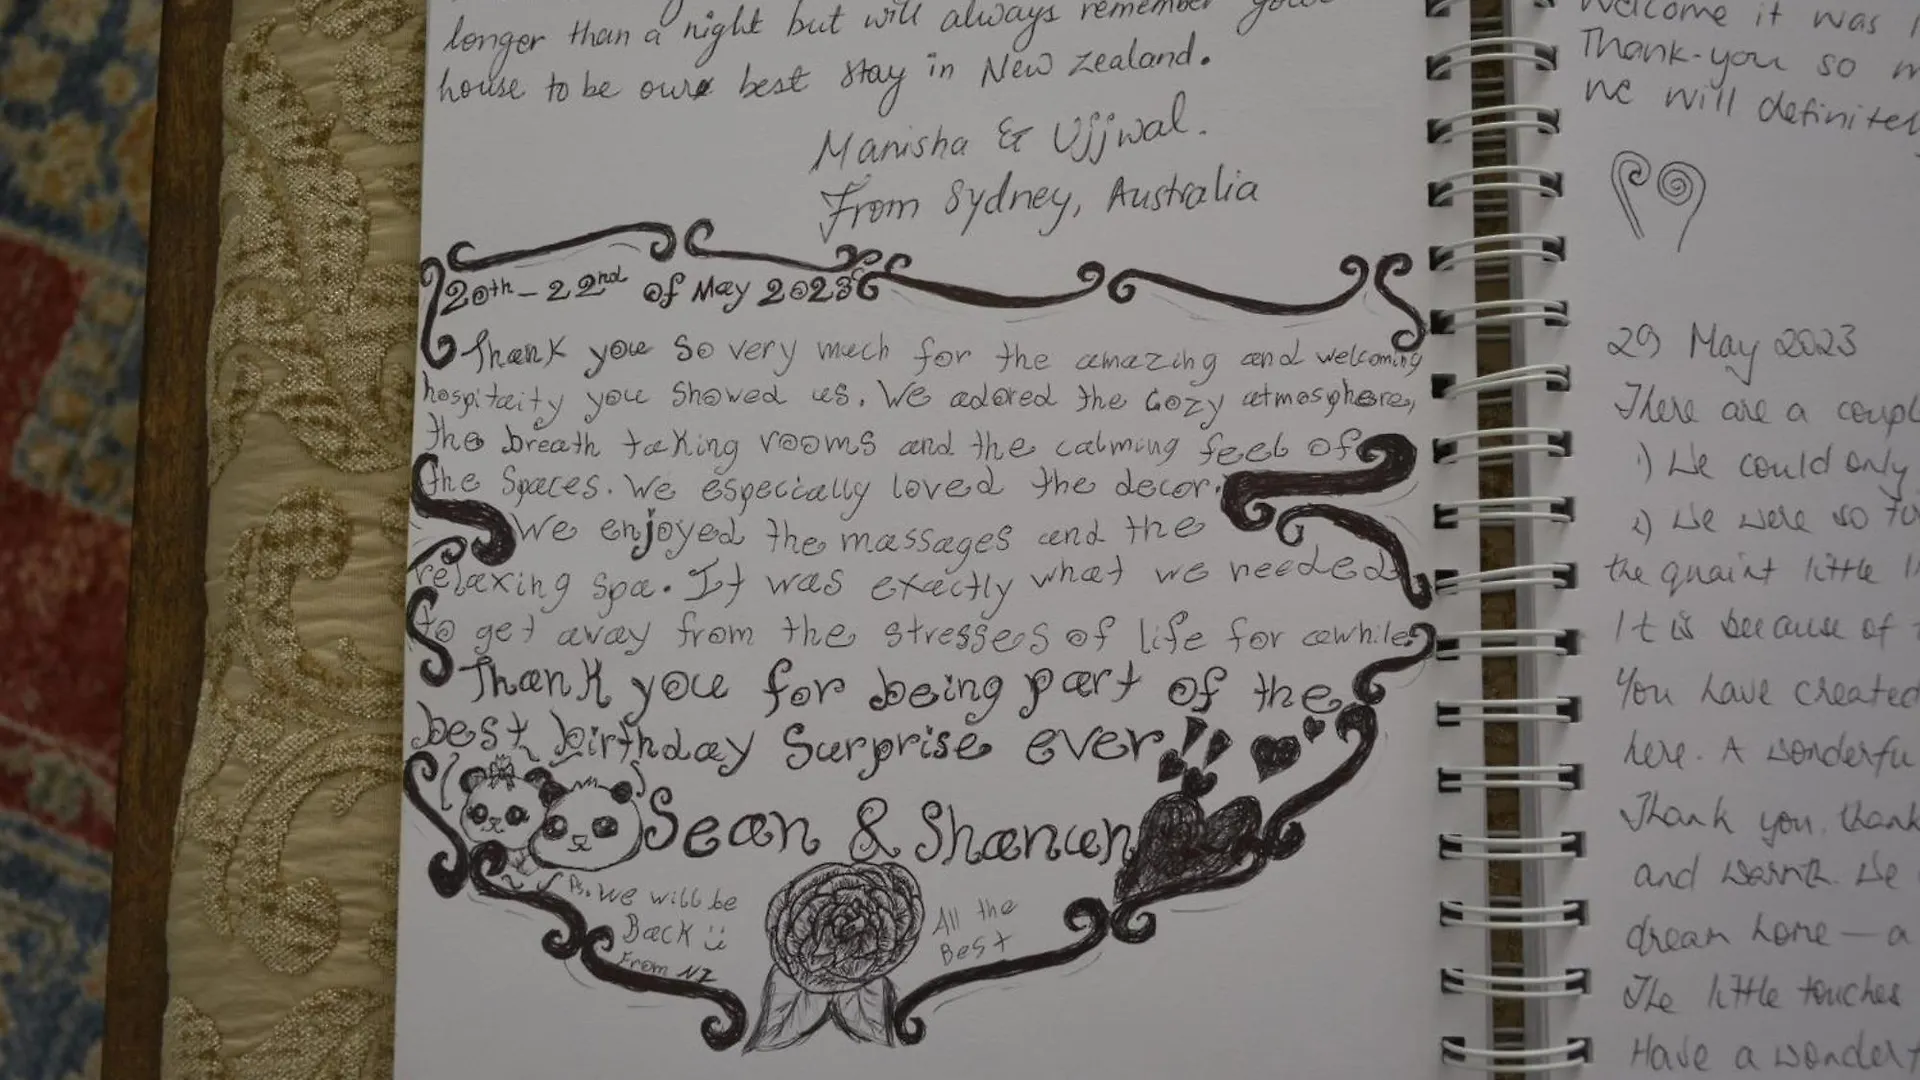 longer than a night but will always remember
house to be our best stay in New Zealand.
Manisha & Ujjwal.
From Sydney, Australia
20th - 22nd of May 2023
Thank you so very much for the amazing and welcoming
hospitaity you showed us. We adored the cozy atmosphere,
the breath taking rooms and the calming feel of
the spaces. We especially loved the decor.
We enjoyed the massages and the
relaxing spa. It was exactly what we needed
to get away from the stresses of life for awhile
Thank you for being part of the
best birthday surprise ever!!
Sean & Shanun
Ps. We will be
Back
From NZ
All the
Best
Welcome it was
Thank-you so
we will definitely
29 May 2023
There are a
1) We could only
2) We were so
the quaint little
It is because of
You have created
here. A wonderfu
Thank you, thank
and warmth. We
dream home — a
The little touches
Have a